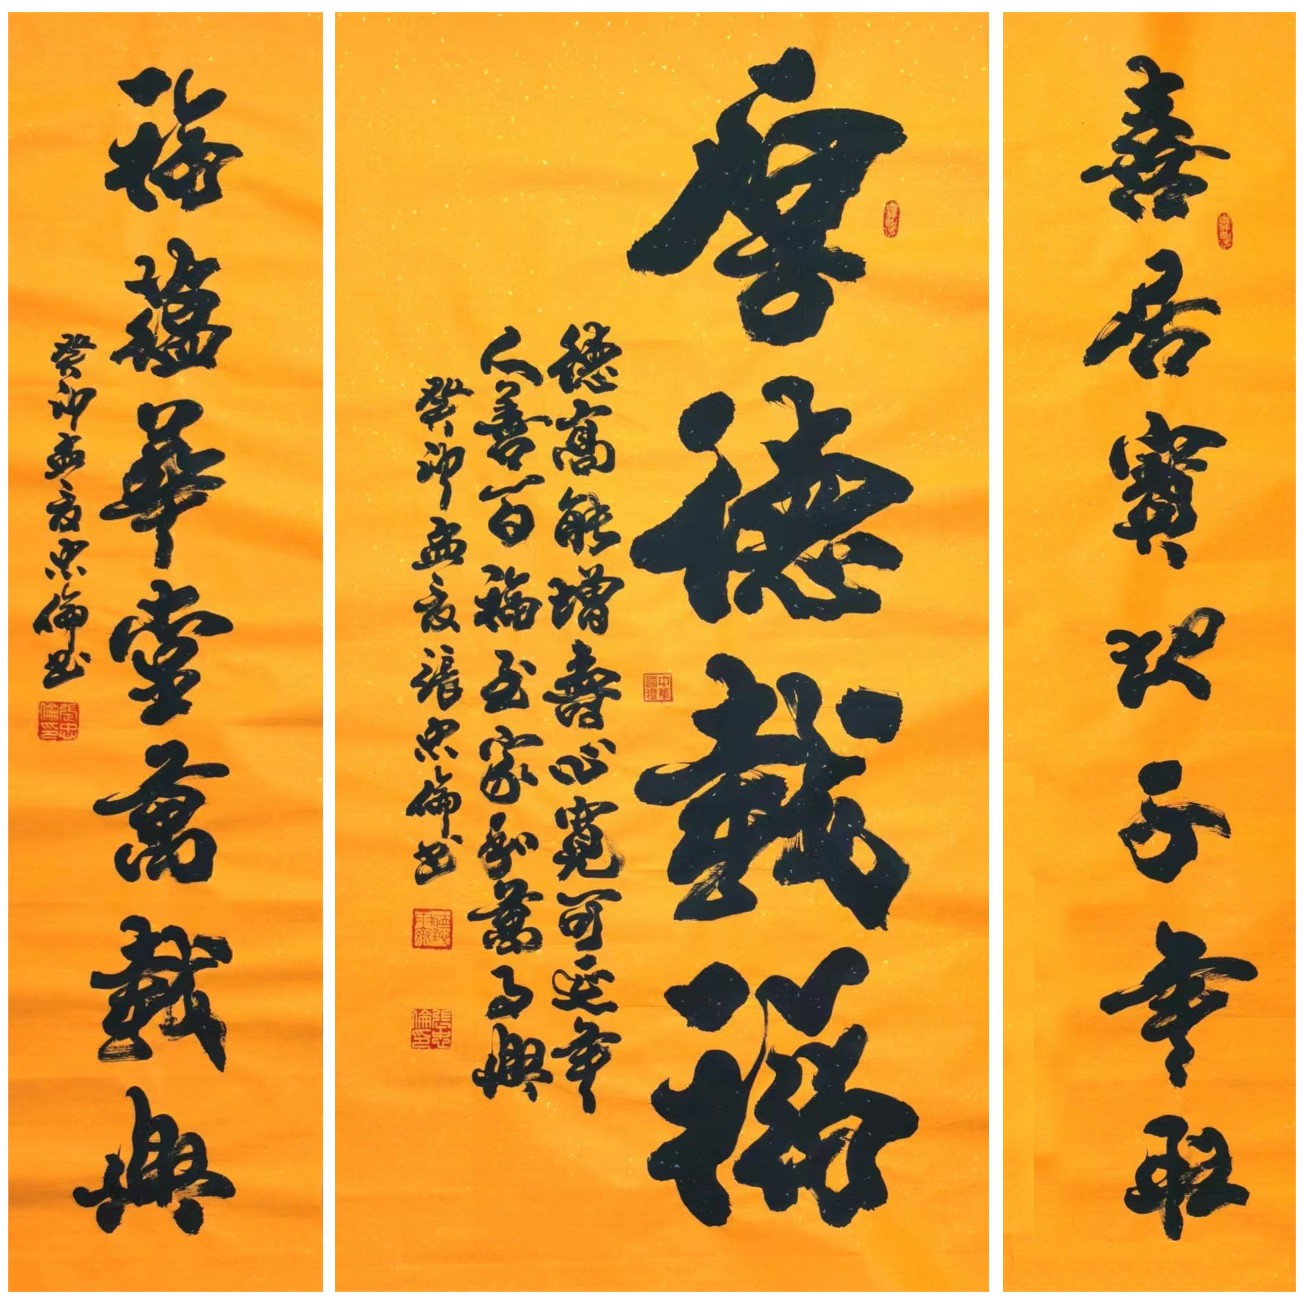 喜居寶地千年旺
厚德載福
德高能增壽心寬可延年
人善百福至家和萬事興
癸卯孟夏張忠倫書
張忠倫印
福蘊華堂萬載興
癸卯孟夏忠倫書
張忠倫印